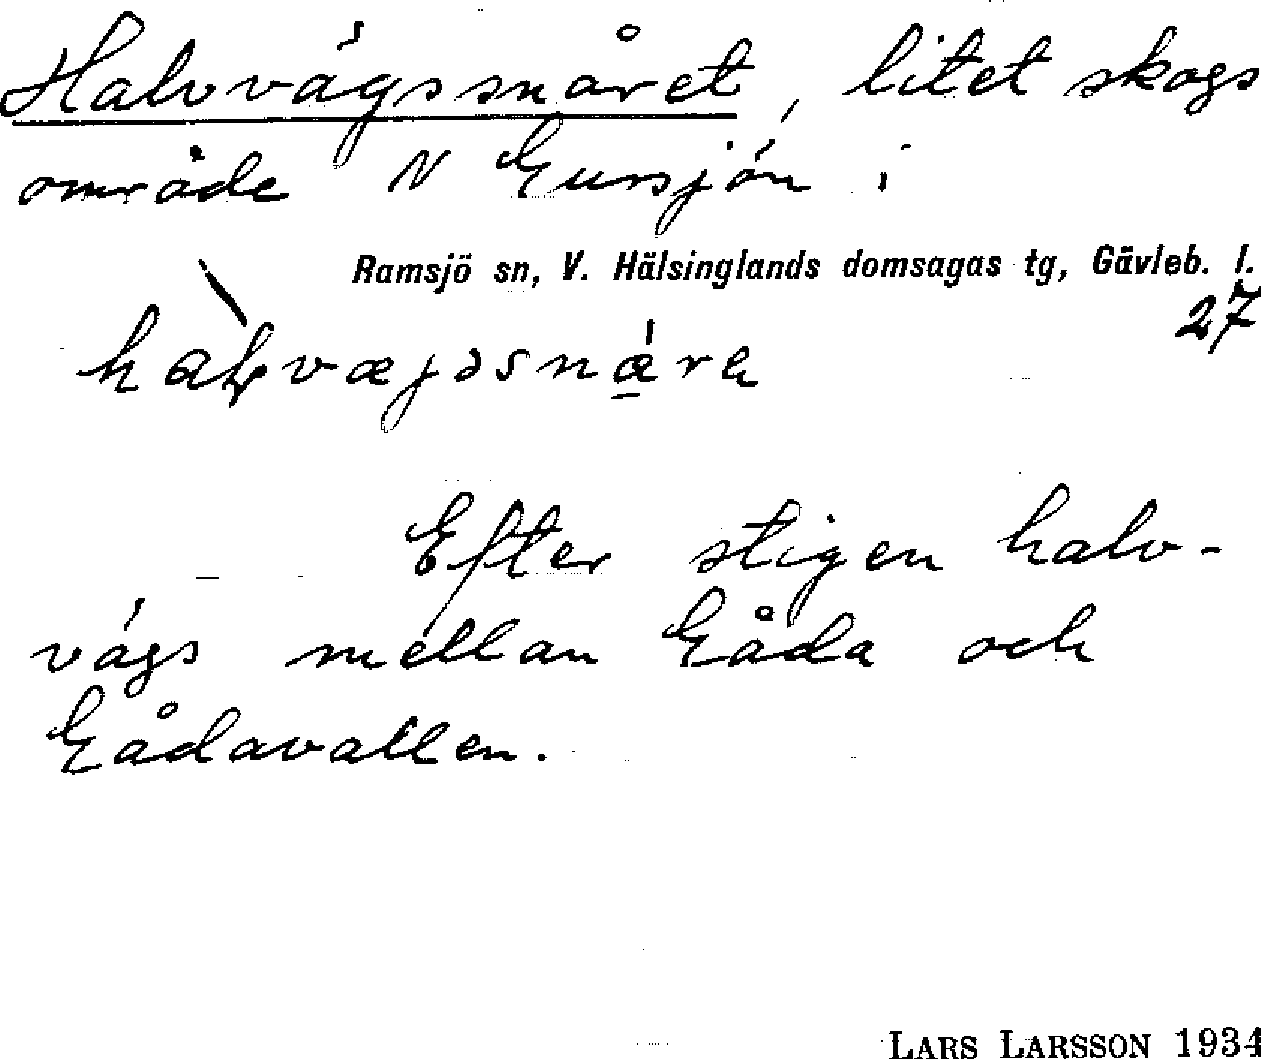 Halvvägssnåret, litet skogs
område N Gursjön i
Ramsjö sn, V. Hälsinglands domsagas tg, Gävleb. l.
27
Efter stigen halv-
vägs mellan Gåda och
Gådavallen.
LARS LARSSON 1934